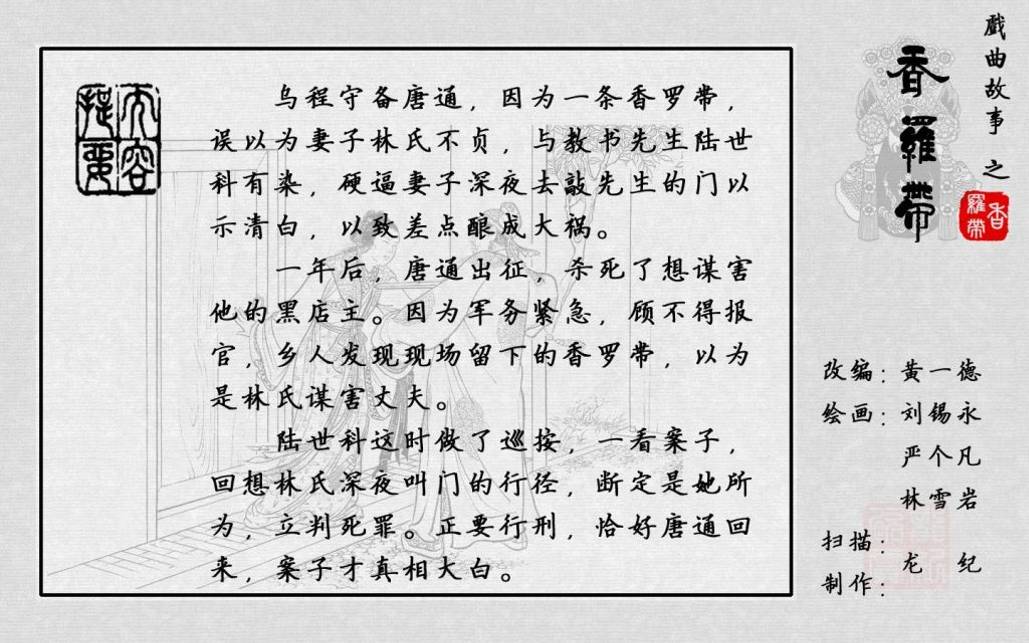 戲曲故事之
香羅帶
香羅帶
内容提要
乌程守备唐通，因为一条香罗带，
误以为妻子林氏不贞，与教书先生陆世
科有染，硬逼妻子深夜去敲先生的门以
示清白，以致差点酿成大祸。
一年后，唐通出征，杀死了想谋害
他的黑店主。因为军务紧急，顾不得报
官，乡人发现现场留下的香罗带，以为
是林氏谋害丈夫。
陆世科这时做了巡按，一看案子，
回想林氏深夜叫门的行径，断定是她所
为，立判死罪。正要行刑，恰好唐通回
来，案子才真相大白。
改编：黄一德
绘画：刘锡永
严个凡
林雪岩
扫描：
龙纪
制作：